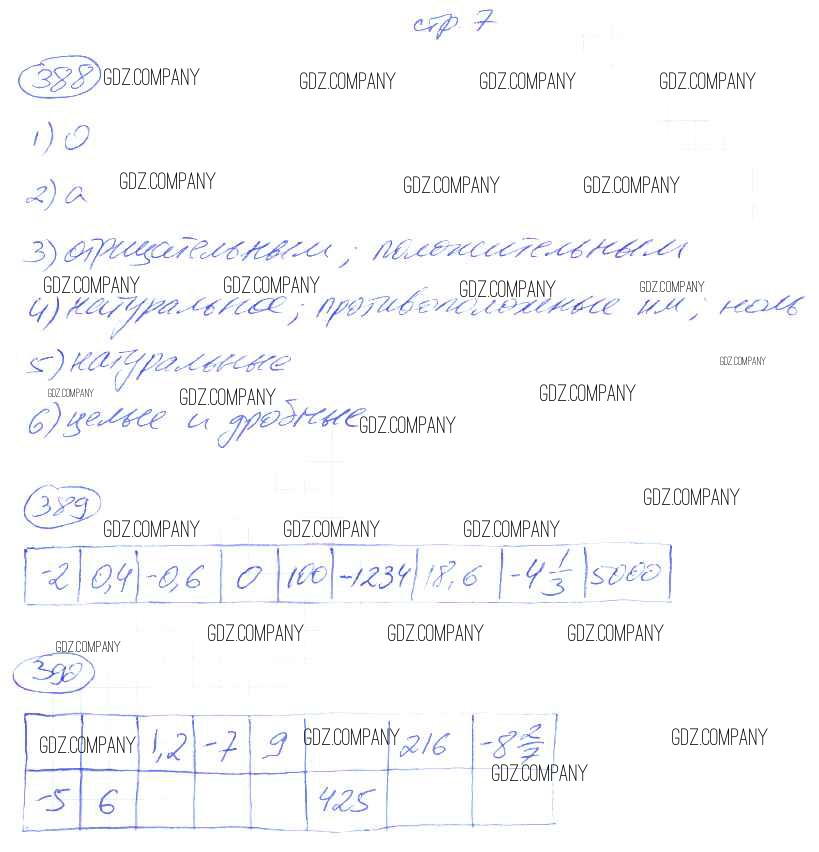 стр. 7
388 GDZ.COMPANY GDZ.COMPANY GDZ.COMPANY GDZ.COMPANY
1) 0
2) а GDZ.COMPANY GDZ.COMPANY GDZ.COMPANY
3) отрицательным; положительным
GDZ.COMPANY GDZ.COMPANY GDZ.COMPANY GDZ.COMPANY
4) натуральное; противоположные им; ноль
5) натуральные GDZ.COMPANY
GDZ.COMPANY GDZ.COMPANY GDZ.COMPANY
6) целые и дробные GDZ.COMPANY
389 GDZ.COMPANY
GDZ.COMPANY GDZ.COMPANY GDZ.COMPANY
-2 0,4 -0,6 0 100 -1234 18,6 -4 1/3 5000
GDZ.COMPANY GDZ.COMPANY GDZ.COMPANY GDZ.COMPANY
390
GDZ.COMPANY 1,2 -7 9 GDZ.COMPANY 216 -8 2/7 GDZ.COMPANY
GDZ.COMPANY
-5 6 425